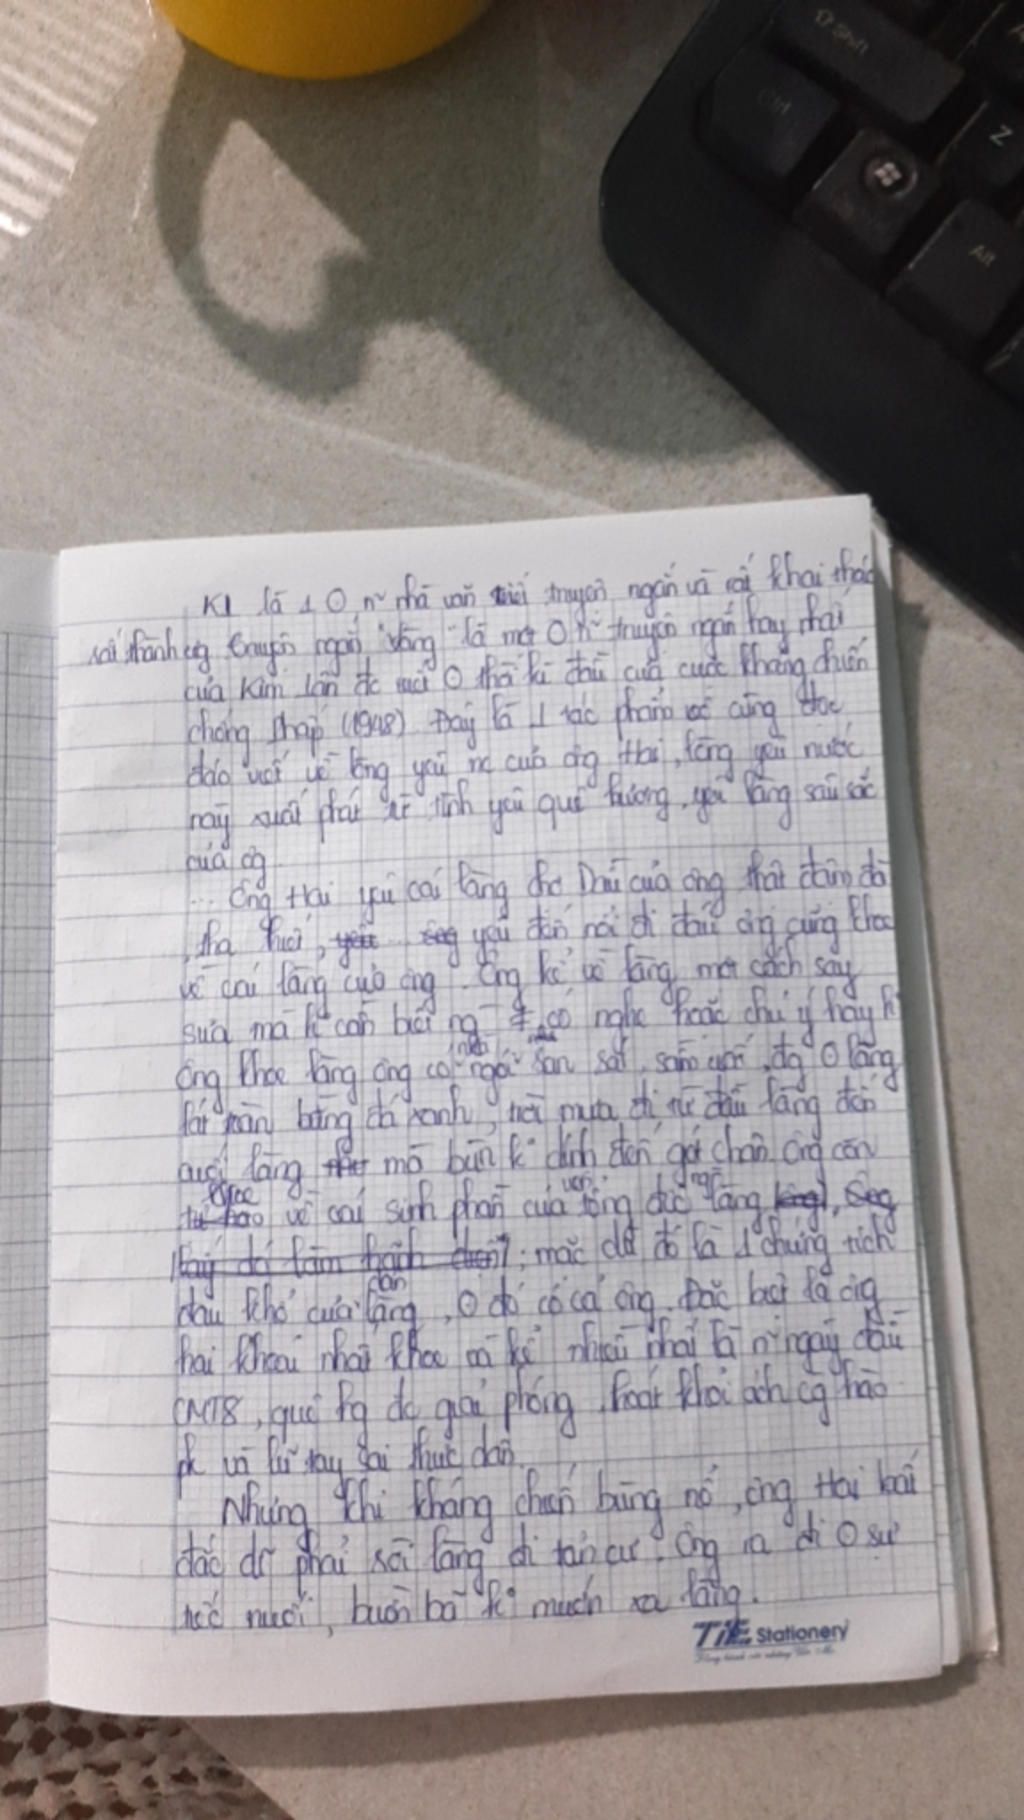 Shift
Ctrl
Z
Alt
KL là 1 O n~ nhà văn viết truyện ngắn và rất khai thác
rất thành cg truyện ngắn "Làng" là một O n~ truyện ngắn hay nhất
của Kim Lân đc viết O thời kì đầu của cuộc kháng chiến
chống Pháp (1948). Đây là 1 tác phẩm vô cùng độc
đáo viết về lòng yêu nc của ông Hai, lòng yêu nước
này xuất phát từ tình yêu quê hương, yêu làng sâu sắc
của ôg
... Ông Hai yêu cái làng chợ Dầu của ông thật đậm đà
, tha thiết, yêu đến nỗi đi đâu ông cũng khoe
về cái làng của ông. Ông kể về làng một cách say
sưa mà k cần biết ng có nghe hoặc chú ý hay k
Ông khoe làng ông có nhà ngói san sát, sầm uất, đg O làng
lát toàn bằng đá xanh, trời mưa đi từ đầu làng đến
cuối làng mà bùn k dính đến gót chân. Ông còn
khoe về cái sinh phần của viên tổng đốc làng
; mặc dù đó là 1 chứng tích
đau khổ của dân làng, O đó có cả ông. Đặc biệt là ông
hai khoái nhất khoe và kể nhiều nhất là n~ ngày đầu
CMT8, quê hg đc giải phóng, thoát khỏi ách cg hào
pk và lũ tay sai thực dân.
Nhưng khi kháng chiến bùng nổ, ông Hai bất
đắc dĩ phải rời làng đi tản cư. Ông ra đi O sự
tiếc nuối, buồn bã k muốn xa làng.
TiE Stationery